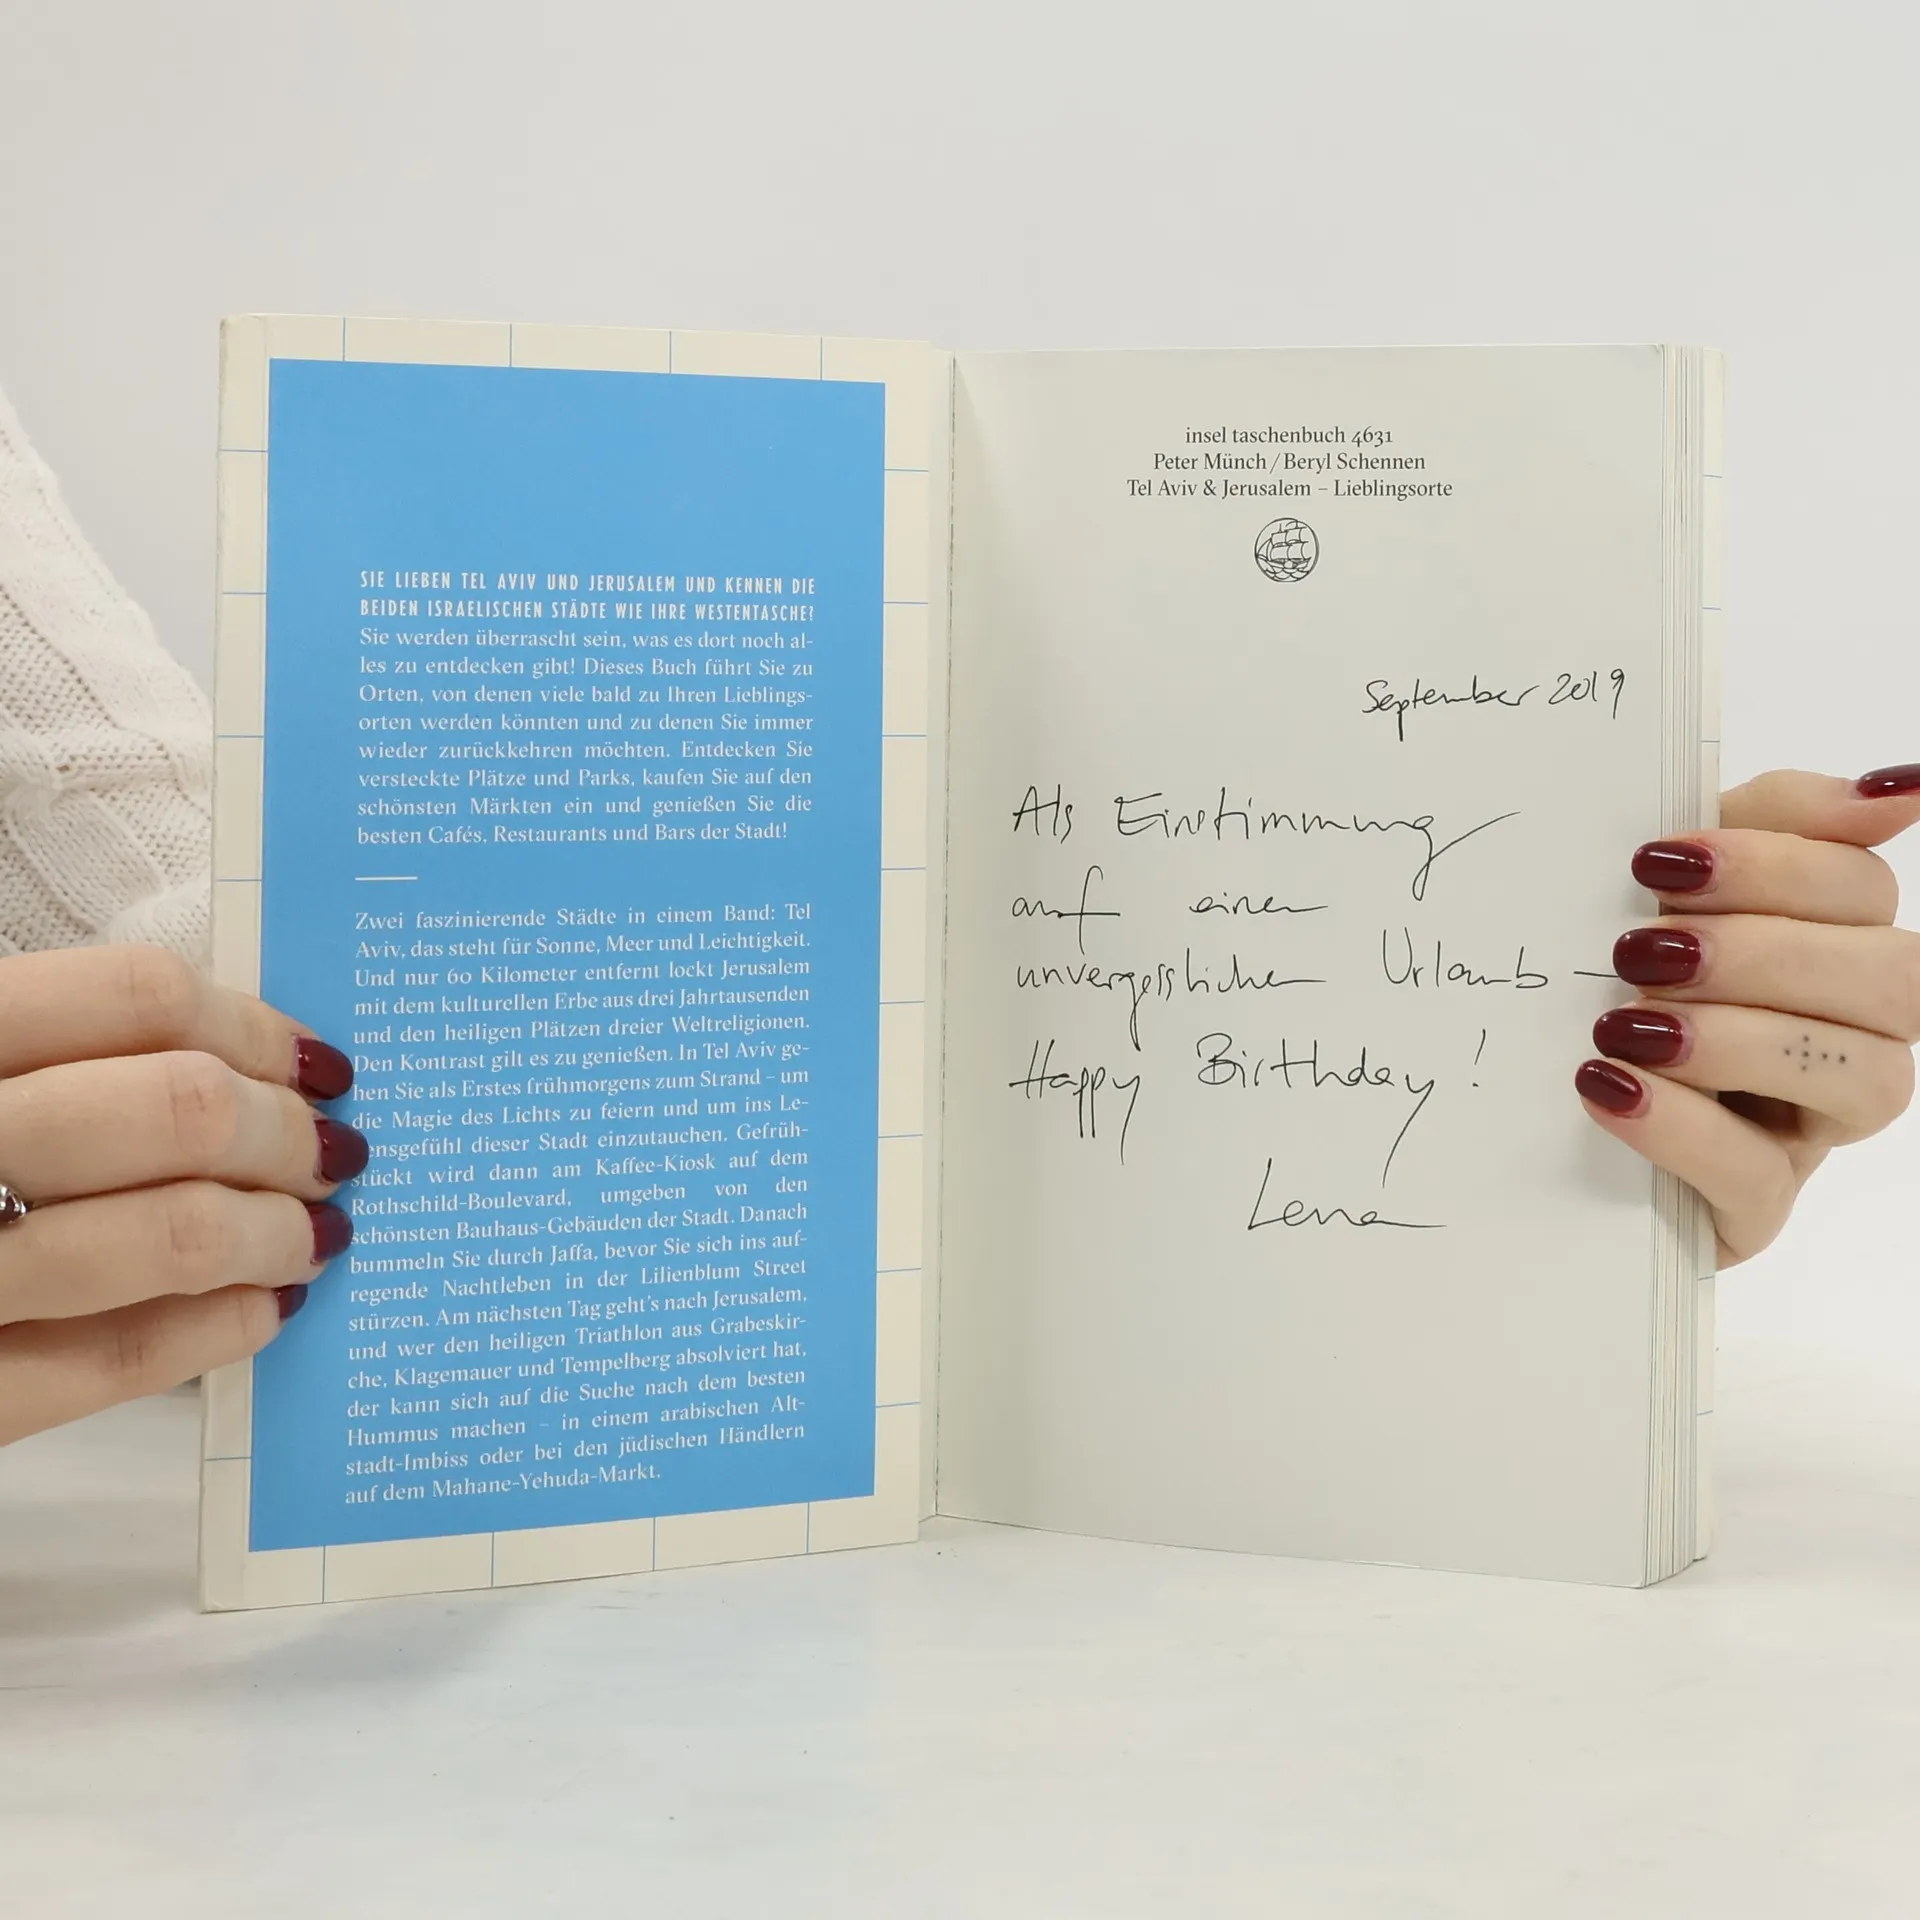 SIE LIEBEN TEL AVIV UND JERUSALEM UND KENNEN DIE
BEIDEN ISRAELISCHEN STÄDTE WIE IHRE WESTENTASCHE?
Sie werden überrascht sein, was es dort noch al-
les zu entdecken gibt! Dieses Buch führt Sie zu
Orten, von denen viele bald zu Ihren Lieblings-
orten werden könnten und zu denen Sie immer
wieder zurückkehren möchten. Entdecken Sie
versteckte Plätze und Parks, kaufen Sie auf den
schönsten Märkten ein und genießen Sie die
besten Cafés, Restaurants und Bars der Stadt!
Zwei faszinierende Städte in einem Band: Tel
Aviv, das steht für Sonne, Meer und Leichtigkeit.
Und nur 60 Kilometer entfernt lockt Jerusalem
mit dem kulturellen Erbe aus drei Jahrtausenden
und den heiligen Plätzen dreier Weltreligionen.
Den Kontrast gilt es zu genießen. In Tel Aviv ge-
hen Sie als Erstes frühmorgens zum Strand – um
die Magie des Lichts zu feiern und um ins Le-
ensgefühl dieser Stadt einzutauchen. Gefrüh-
stückt wird dann am Kaffee-Kiosk auf dem
Rothschild-Boulevard, umgeben von den
schönsten Bauhaus-Gebäuden der Stadt. Danach
bummeln Sie durch Jaffa, bevor Sie sich ins auf-
regende Nachtleben in der Lilienblum Street
stürzen. Am nächsten Tag geht's nach Jerusalem,
und wer den heiligen Triathlon aus Grabeskir-
che, Klagemauer und Tempelberg absolviert hat,
der kann sich auf die Suche nach dem besten
Hummus machen – in einem arabischen Alt-
stadt-Imbiss oder bei den jüdischen Händlern
auf dem Mahane-Yehuda-Markt.
insel taschenbuch 4631
Peter Münch / Beryl Schennen
Tel Aviv & Jerusalem – Lieblingsorte
September 2019
Als Einstimmung
auf einen
unvergesslichen Urlaub –
Happy Birthday!
Lena